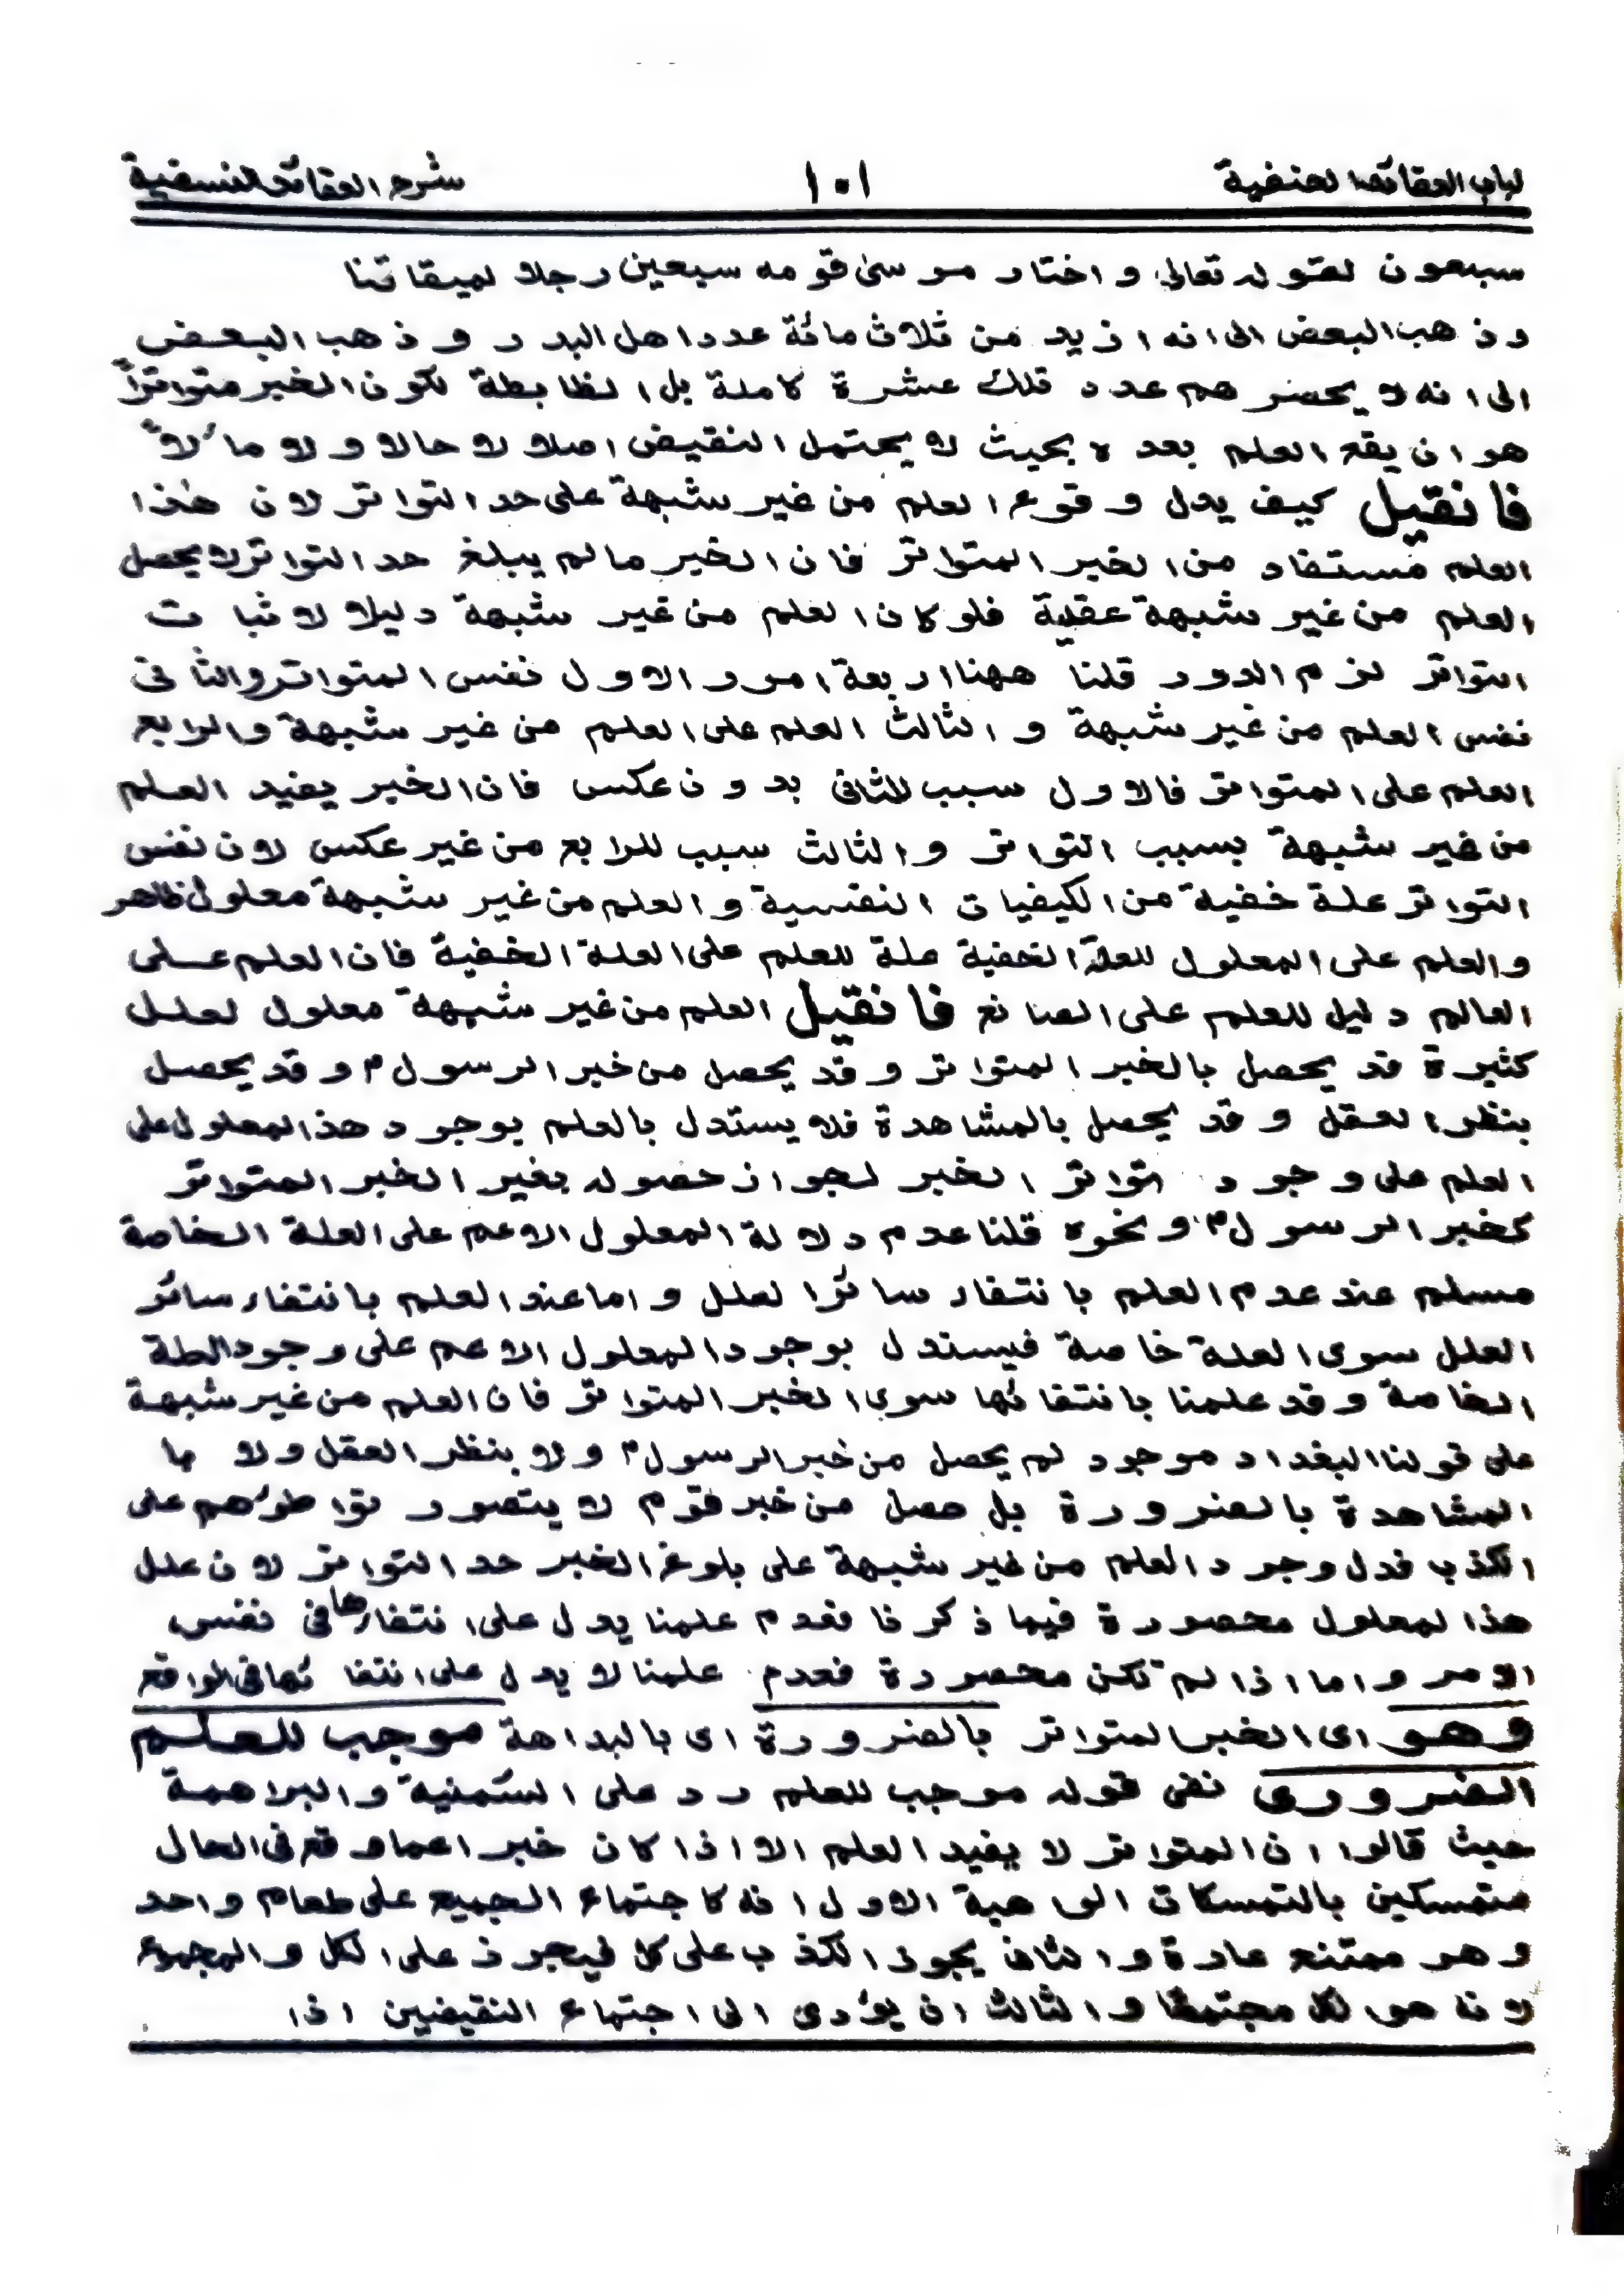 لباب العقائد الحنفية ١٠١ شرح العقائد النسفية
سبعون لقوله تعالى واختار موسى قومه سبعين رجلا لميقاتنا
وذهب البعض الى انه ازيد من ثلاث مائة عدد اهل البدر وذهب البعض
الى انه لا يحضرهم عدد تلك عشرة كاملة بل الظابطة لكون الخبر متواتراً
هو ان يقع العلم بعده بحيث لا يحتمل النقيض اصلا لا حالا ولا مآلاً
فان قيل كيف يدل وقوع العلم من غير شبهة على حد التواتر لان هذا
العلم مستفاد من الخبر المتواتر فان الخبر مالم يبلغ حد التواتر لا يحصل
العلم من غير شبهة عقلية فلو كان العلم من غير شبهة دليلا لاثبات
التواتر لزم الدور قلنا ههنا اربعة امور الاول نفس المتواتر والثانى
نفس العلم من غير شبهة والثالث العلم على العلم من غير شبهة والرابع
العلم على المتواتر فالاول سبب للثانى بدون عكس فان الخبر يفيد العلم
من غير شبهة بسبب التواتر والثالث سبب للرابع من غير عكس لان نفس
التواتر علة خفية من الكيفيات النفسية والعلم من غير شبهة معلول ظاهر
والعلم على المعلول للعلة الخفية علة للعلم على العلة الخفية فان العلم على
العالم دليل للعلم على الصانع فان قيل العلم من غير شبهة معلول لعلل
كثيرة قد يحصل بالخبر المتواتر وقد يحصل من خبر الرسولؐ وقد يحصل
بنظر العقل وقد يحصل بالمشاهدة فلا يستدل بالعلم بوجود هذ المعلول على
العلم على وجود تواتر الخبر لجواز حصوله بغير الخبر المتواتر
كخبر الرسولؐ ونحوه قلنا عدم دلالة المعلول الاعم على العلة الخاصة
مسلم عند عدم العلم بانتفاء سائر العلل واما عند العلم بانتفاء سائر
العلل سوى العلة خاصة فيستدل بوجود المعلول الاعم على وجود العلة
الخاصة وقد علمنا بانتفائها سوى الخبر المتواتر فان العلم من غير شبهة
على قولنا البغداد موجود لم يحصل من خبر الرسولؐ ولا بنظر العقل ولا با
المشاهدة بالضرورة بل حصل من خبر قوم لا يتصور تواطؤهم على
الكذب فدل وجود العلم من غير شبهة على بلوغ الخبر حد التواتر لان علل
هذا لمعلول محصورة فيما ذكرنا فعدم علمنا يدل على انتفاءها فى نفس
الامر واما اذا لم تكن محصورة فعدم علمنا لا يدل على انتفائها فى الواقع
وهو اى الخبر المتواتر بالضرورة اى بالبداهة موجب للعلم
الضرورى نفى قوله موجب للعلم رد على السمنية والبراهمة
حيث قالوا ان المتواتر لا يفيد العلم الا اذا كان خبرا عما وقع فى الحال
متمسكين بالتمسكات الواهية الاول انه كاجتماع الجميع على طعام واحد
وهو ممتنع عادة والثانى يجوز الكذب على كل فيجوز على الكل والمجموع
لانا هو الكل مجتمعًا والثالث ان يؤدى الى اجتماع النقيضين اذا